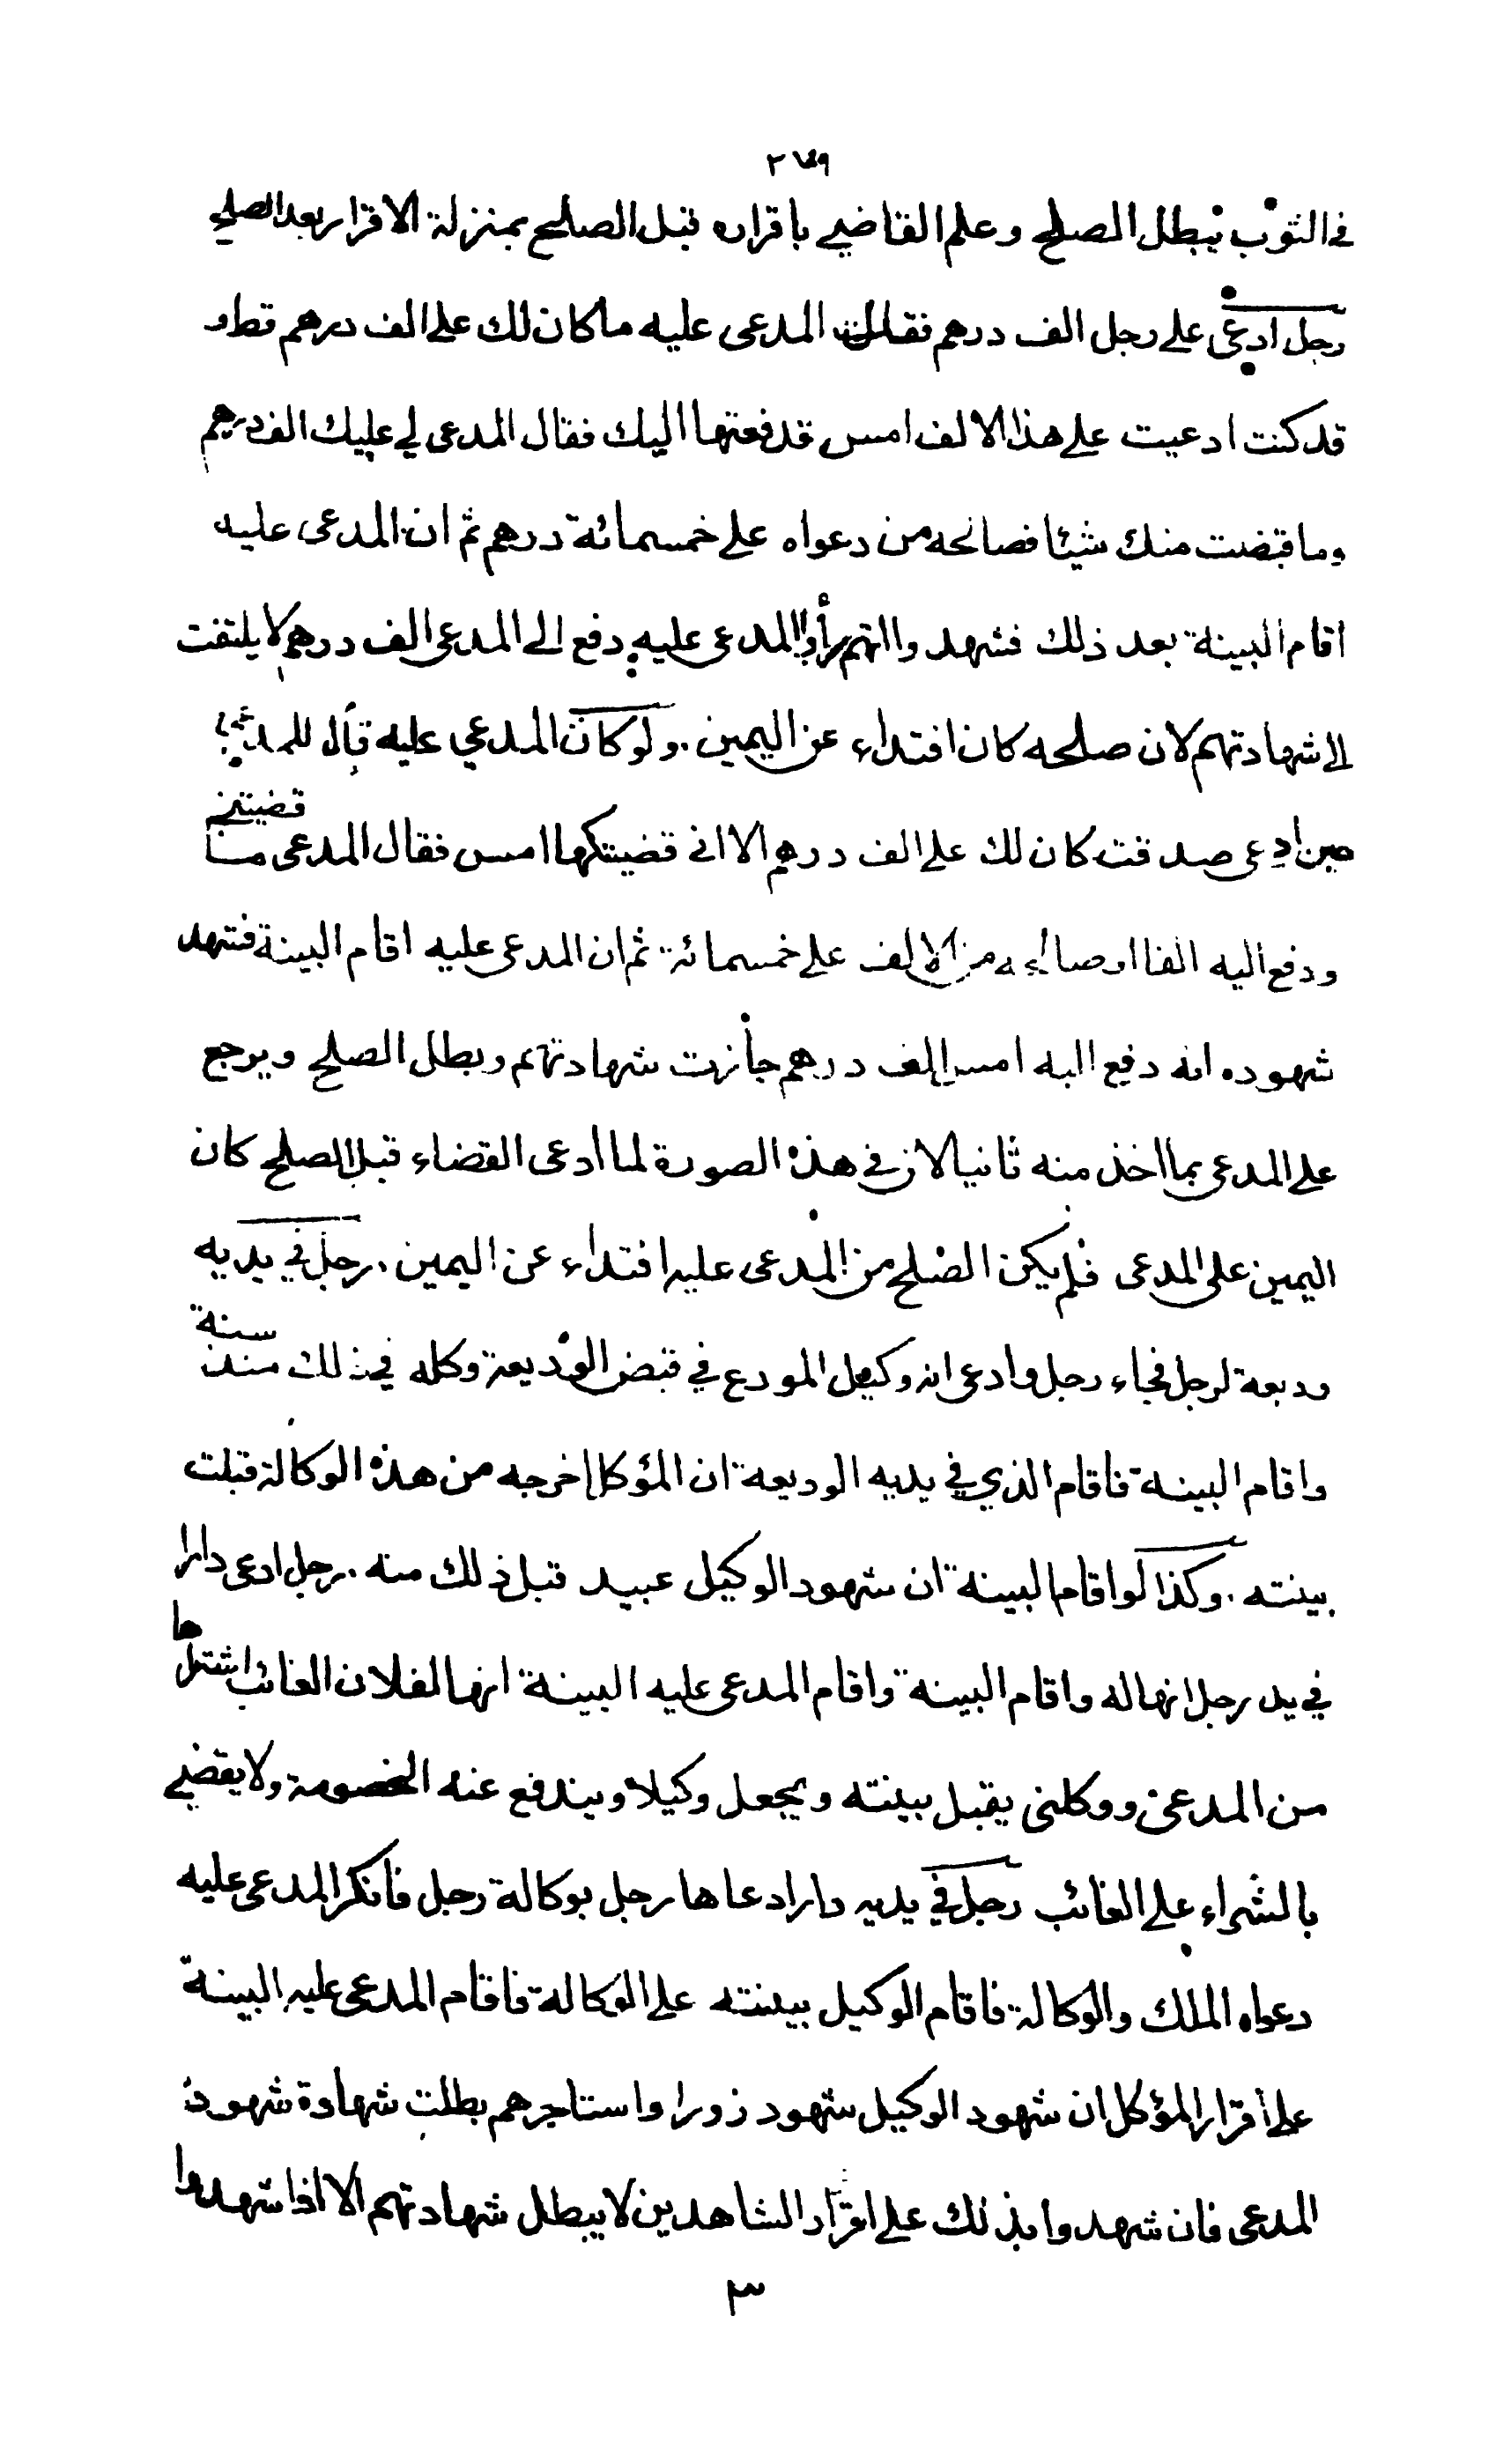 ٢٧٩
في الثوب يبطل الصلح وعلم القاضي باقراره قبل الصلح بمنزلة الاقرار بعد الصلح
رجل ادعى على رجل الف درهم فقال المدعى عليه ما كان لك على الف درهم قط و
قد كنت ادعيت على هذا الالف امس قد فعتها اليك فقال المدعى لي عليك الف درهم
وما قبضت منك شيئا فصالحه من دعواه على خمسمائة درهم ثم ان المدعى عليه
اقام البينة بعد ذلك فشهد وا المدعى عليه دفع الى المدعى الف درهم لا يلتفت
الى شهادتهم لان صلحه كان افتداء عن اليمين . ولو كان المدعي عليه قال للمدعي
حين ادعى صدقت كان لك على الف درهم الا اني قضيتكها امس فقال المدعى ما قضيتني
ودفع اليه الفا او صالحه من الالف على خمسمائة ثم ان المدعى عليه اقام البينة فشهد
شهوده انه دفع اليه امس الف درهم جازت شهادتهم وبطل الصلح ويرجع
على المدعى بما اخذ منه ثانيا لان في هذه الصورة لما ادعى القضاء قبل الصلح كان
اليمين على المدعى فلم يكن الصلح من المدعى عليه افتداء عن اليمين . رجل في يديه
وديعة لرجل فجاء رجل وادعى انه وكيل المودع في قبض الوديعة وكله في ذلك منذ سنة
واقام البينة فاقام الذي في يديه الوديعة ان المؤكل اخرجه من هذه الوكالة قبلت
بينته . وكذا لو اقام البينة ان شهود الوكيل عبيد قبل ذلك منه . رجل ادعى دارا
في يد رجل انها له واقام البينة واقام المدعى عليه البينة انها لفلان الغائب اشتراها
من المدعى ووكلنى يقبل بينته ويجعل وكيلا ويندفع عنه الخصومة ولا يقضي
بالشراء على الغائب رجل في يديه دار ادعاها رجل بوكالة رجل فانكر المدعى عليه
دعواه الملك والوكالة فاقام الوكيل بينته على الوكالة فاقام المدعى عليه البينة
على اقرار المؤكل ان شهود الوكيل شهود زورا واستاجرهم بطلت شهادة شهود
المدعى فان شهدوا بذلك على اقرار الشاهدين لا يبطل شهادتهم الا اذا شهدوا
٣